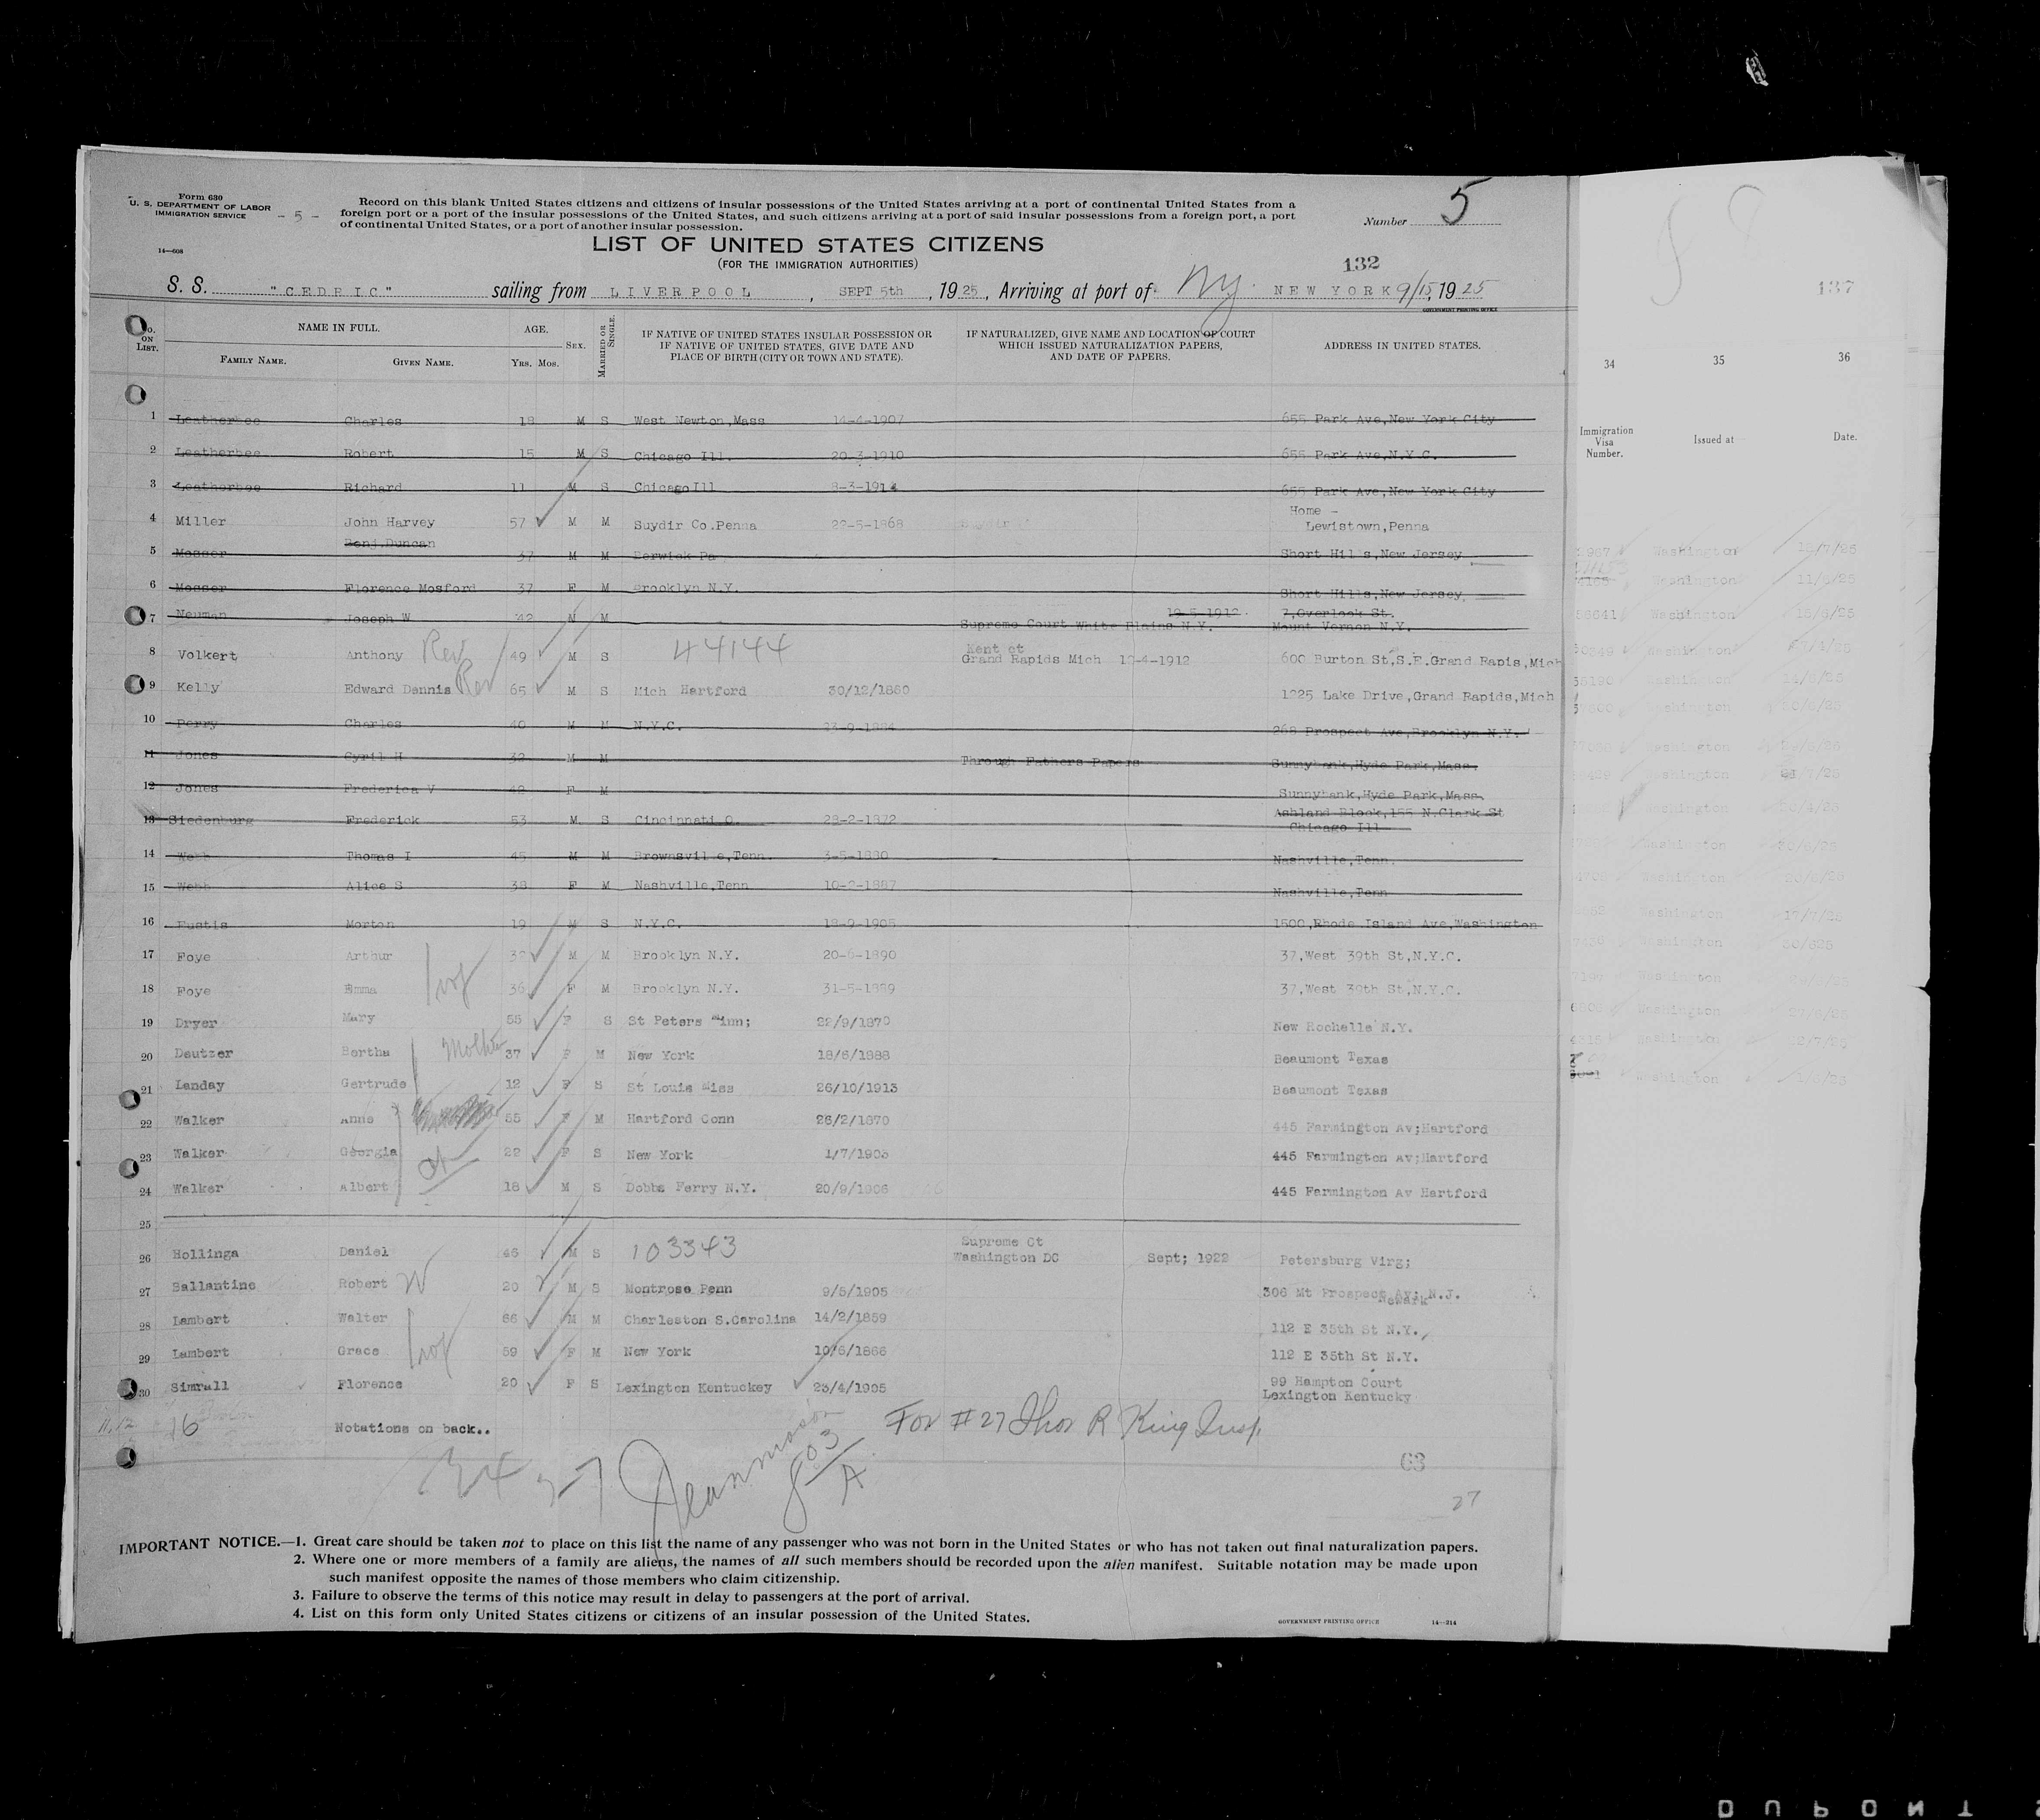 Form 630
U. S. DEPARTMENT OF LABOR
IMMIGRATION SERVICE
- 5 -
14—608
Record on this blank United States citizens and citizens of insular possessions of the United States arriving at a port of continental United States from a
foreign port or a port of the insular possessions of the United States, and such citizens arriving at a port of said insular possessions from a foreign port, a port
of continental United States, or a port of another insular possession.
Number 5
LIST OF UNITED STATES CITIZENS
(FOR THE IMMIGRATION AUTHORITIES)
132
137
S. S. "CEDRIC" sailing from LIVERPOOL, SEPT 5th, 1925, Arriving at port of NY. NEW YORK 9/15, 1925
GOVERNMENT PRINTING OFFICE
No. ON LIST. NAME IN FULL. FAMILY NAME. GIVEN NAME. AGE. Yrs. Mos. SEX. MARRIED OR SINGLE. IF NATIVE OF UNITED STATES INSULAR POSSESSION OR IF NATIVE OF UNITED STATES, GIVE DATE AND PLACE OF BIRTH (CITY OR TOWN AND STATE). IF NATURALIZED, GIVE NAME AND LOCATION OF COURT WHICH ISSUED NATURALIZATION PAPERS, AND DATE OF PAPERS. ADDRESS IN UNITED STATES.
34 35 36
Immigration Visa Number. Issued at Date.
1 Leatherbee Charles 18 M S West Newton,Mass 14-4-1907 655 Park Ave,New York City
2 Leatherbee Robert 15 M S Chicago Ill. 20-3-1910 655 Park Ave,N.Y.C.
3 Leatherbee Richard 11 M S Chicago Ill 8-3-1914 655 Park Ave,New York City
4 Miller John Harvey 57 M M Suydir Co.Penna 22-5-1868 Home - Lewistown,Penna
5 Mosser Benj.Duncan 37 M M Berwick Pa Short Hills,New Jersey
6 Mosser Florence Mosford 37 F M Brooklyn N.Y. Short Hills,New Jersey
7 Neuman Joseph W 42 M M Supreme Court White Plains N.Y. 7,Overlook St. Mount Vernon N.Y.
8 Volkert Anthony Rev 49 M S 44144 Kent ct Grand Rapids Mich 600 Burton St,S.E.Grand Rapis,Mich
9 Kelly Edward Dennis Rev 65 M S Mich Hartford 30/12/1860 1225 Lake Drive,Grand Rapids,Mich
10 Perry Charles 40 M M N.Y.C. 23-9-1884 268 Prospect Ave,Brooklyn N.Y.
11 Jones Cyril H 32 M M Through Fathers Papers Sunnybank,Hyde Park,Mass.
12 Jones Frederica V 42 F M Sunnybank,Hyde Park,Mass.
13 Siedenburg Frederick 53 M S Cincinnati O. 28-2-1872 Ashland Block,155 N.Clark St Chicago Ill
14 Webb Thomas I 45 M M Brownsville,Tenn. 3-5-1880 Nashville,Tenn.
15 Webb Alice S 38 F M Nashville,Tenn 10-2-1887 Nashville,Tenn
16 Eustis Morton 19 M S N.Y.C. 18-9-1905 1500,Rhode Island Ave,Washington
17 Foye Arthur M M Brooklyn N.Y. 1890 37,West 39th St,N.Y.C.
18 Foye Emma 36 F M Brooklyn N.Y. 31-5-1889 37,West 39th St,N.Y.C.
19 Dryer Mary 55 F S St Peters Minn; 22/9/1870 New Rochelle N.Y.
20 Deutzer Bertha Mother 37 F M New York 18/6/1888 Beaumont Texas
21 Landay Gertrude 12 F S St Louis Miss 26/10/1913 Beaumont Texas
22 Walker Anne 55 F M Hartford Conn 26/2/1870 445 Farmington Av;Hartford
23 Walker Georgia 22 F S New York 1/7/1903 445 Farmington Av;Hartford
24 Walker Albert 18 M S Dobbs Ferry N.Y. 20/9/1906 445 Farmington Av Hartford
25
26 Hollinga Daniel 46 M S 103343 Supreme Ct Washington DC Sept; 1922 Petersburg Virg;
27 Ballantine Robert 20 M S Montrose Penn 9/5/1905 306 Mt Prospect Av; N.J. Newark
28 Lambert Walter 66 M M Charleston S.Carolina 14/2/1859 112 E 35th St N.Y.
29 Lambert Grace 59 F M New York 10/6/1866 112 E 35th St N.Y.
30 Simrall Florence 20 F S Lexington Kentuckey 23/4/1905 99 Hampton Court Lexington Kentucky
16 Notations on back.. For #27 Thos R King Insp.
63
27
IMPORTANT NOTICE.—1. Great care should be taken not to place on this list the name of any passenger who was not born in the United States or who has not taken out final naturalization papers.
2. Where one or more members of a family are aliens, the names of all such members should be recorded upon the alien manifest. Suitable notation may be made upon
such manifest opposite the names of those members who claim citizenship.
3. Failure to observe the terms of this notice may result in delay to passengers at the port of arrival.
4. List on this form only United States citizens or citizens of an insular possession of the United States.
GOVERNMENT PRINTING OFFICE 14—214
DUPONT